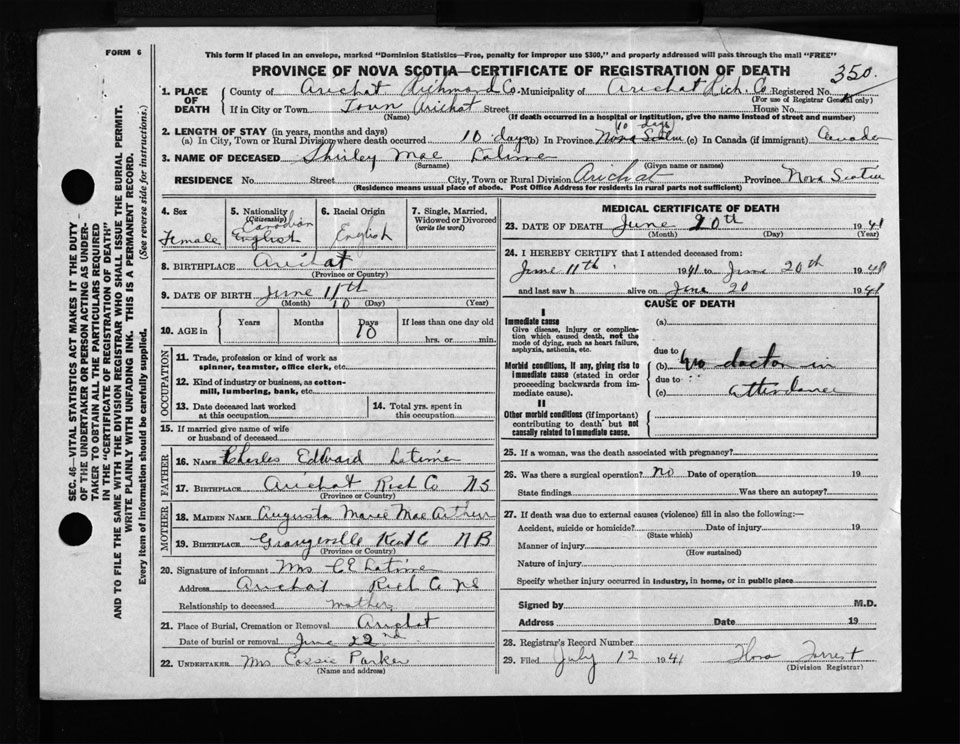 FORM 6
This form if placed in an envelope, marked "Dominion Statistics—Free, penalty for improper use $300," and properly addressed will pass through the mail "FREE"
PROVINCE OF NOVA SCOTIA—CERTIFICATE OF REGISTRATION OF DEATH
350.
SEC. 46—VITAL STATISTICS ACT MAKES IT THE DUTY
OF THE UNDERTAKER OR PERSON ACTING AS UNDER-
TAKER TO OBTAIN ALL THE PARTICULARS REQUIRED
IN THE "CERTIFICATE OF REGISTRATION OF DEATH"
AND TO FILE THE SAME WITH THE DIVISION REGISTRAR WHO SHALL ISSUE THE BURIAL PERMIT.
WRITE PLAINLY WITH UNFADING INK. THIS IS A PERMANENT RECORD.
Every item of information should be carefully supplied. (See reverse side for instructions.)
1. PLACE OF DEATH
County of Arichat Richmond Co. Municipality of Arichat Rich. Co Registered No.
(For use of Registrar General only)
If in City or Town Town Arichat Street House No.
(Name) (If death occurred in a hospital or institution, give the name instead of street and number)
2. LENGTH OF STAY (in years, months and days)
10 days
(a) In City, Town or Rural Division where death occurred 10 days (b) In Province Nova Scotia (c) In Canada (if immigrant) Canada
3. NAME OF DECEASED Shirley Mae Latimer
(Surname) (Given name or names)
RESIDENCE No. Street City, Town or Rural Division Arichat Province Nova Scotia
(Residence means usual place of abode. Post Office Address for residents in rural parts not sufficient)
4. Sex
Female
5. Nationality (Citizenship)
Canadian
English
6. Racial Origin
English
7. Single, Married, Widowed or Divorced (write the word)
8. BIRTHPLACE Arichat
(Province or Country)
9. DATE OF BIRTH June 11th
(Month) 10 (Day) (Year)
10. AGE in Years Months Days If less than one day old
10 hrs. or min.
OCCUPATION
11. Trade, profession or kind of work as spinner, teamster, office clerk, etc.
12. Kind of industry or business, as cotton-mill, lumbering, bank, etc.
13. Date deceased last worked at this occupation
14. Total yrs. spent in this occupation
15. If married give name of wife or husband of deceased
FATHER
16. NAME Charles Edward Latimer
17. BIRTHPLACE Arichat Rich Co NS
(Province or Country)
MOTHER
18. MAIDEN NAME Augusta Marie MacArthur
19. BIRTHPLACE Grangeville Kent Co NB
(Province or Country)
20. Signature of informant Mrs C E Latimer
Address Arichat Rich Co NS
Relationship to deceased mother
21. Place of Burial, Cremation or Removal Arichat
Date of burial or removal June 22nd
22. UNDERTAKER Mrs Cassie Parker
(Name and address)
MEDICAL CERTIFICATE OF DEATH
23. DATE OF DEATH June 20th 1941
(Month) (Day) (Year)
24. I HEREBY CERTIFY that I attended deceased from:
June 11th 1941 to June 20th 1941
and last saw h alive on June 20 1941
CAUSE OF DEATH
I
Immediate cause
Give disease, injury or complication which caused death, not the mode of dying, such as heart failure, asphyxia, asthenia, etc.
Morbid conditions, if any, giving rise to immediate cause (stated in order proceeding backwards from immediate cause).
II
Other morbid conditions (if important) contributing to death but not causally related to immediate cause.
(a)
due to
(b) no doctor in
due to
(c) attendance
25. If a woman, was the death associated with pregnancy?
26. Was there a surgical operation? No Date of operation 19
State findings Was there an autopsy?
27. If death was due to external causes (violence) fill in also the following:—
Accident, suicide or homicide? Date of injury 19
(State which)
Manner of injury
(How sustained)
Nature of injury
Specify whether injury occurred in industry, in home, or in public place
Signed by M.D.
Address Date 19
28. Registrar's Record Number
29. Filed July 12 1941 Flora Forrest
(Division Registrar)